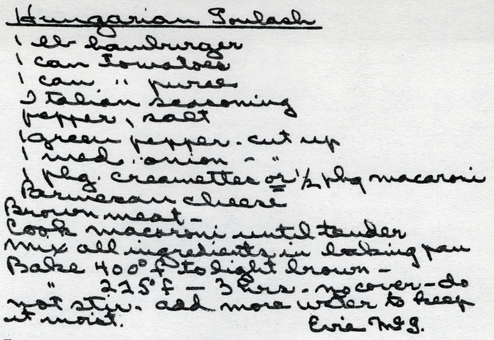 Hungarian Goulash
1 lb hamburger
1 can Tomatoes
1 can " puree
Italian seasoning
pepper, salt
1 green pepper - cut up
1 med. onion - " "
1 pkg. creamettes or 1/2 pkg macaroni
Parmesan cheese
Brown meat -
Cook macaroni until tender
Mix all ingredients in baking pan
Bake 400°f to light brown -
" 225°f - 3 hrs. - no cover - do
not stir. add more water to keep
it moist.
Evie McG.